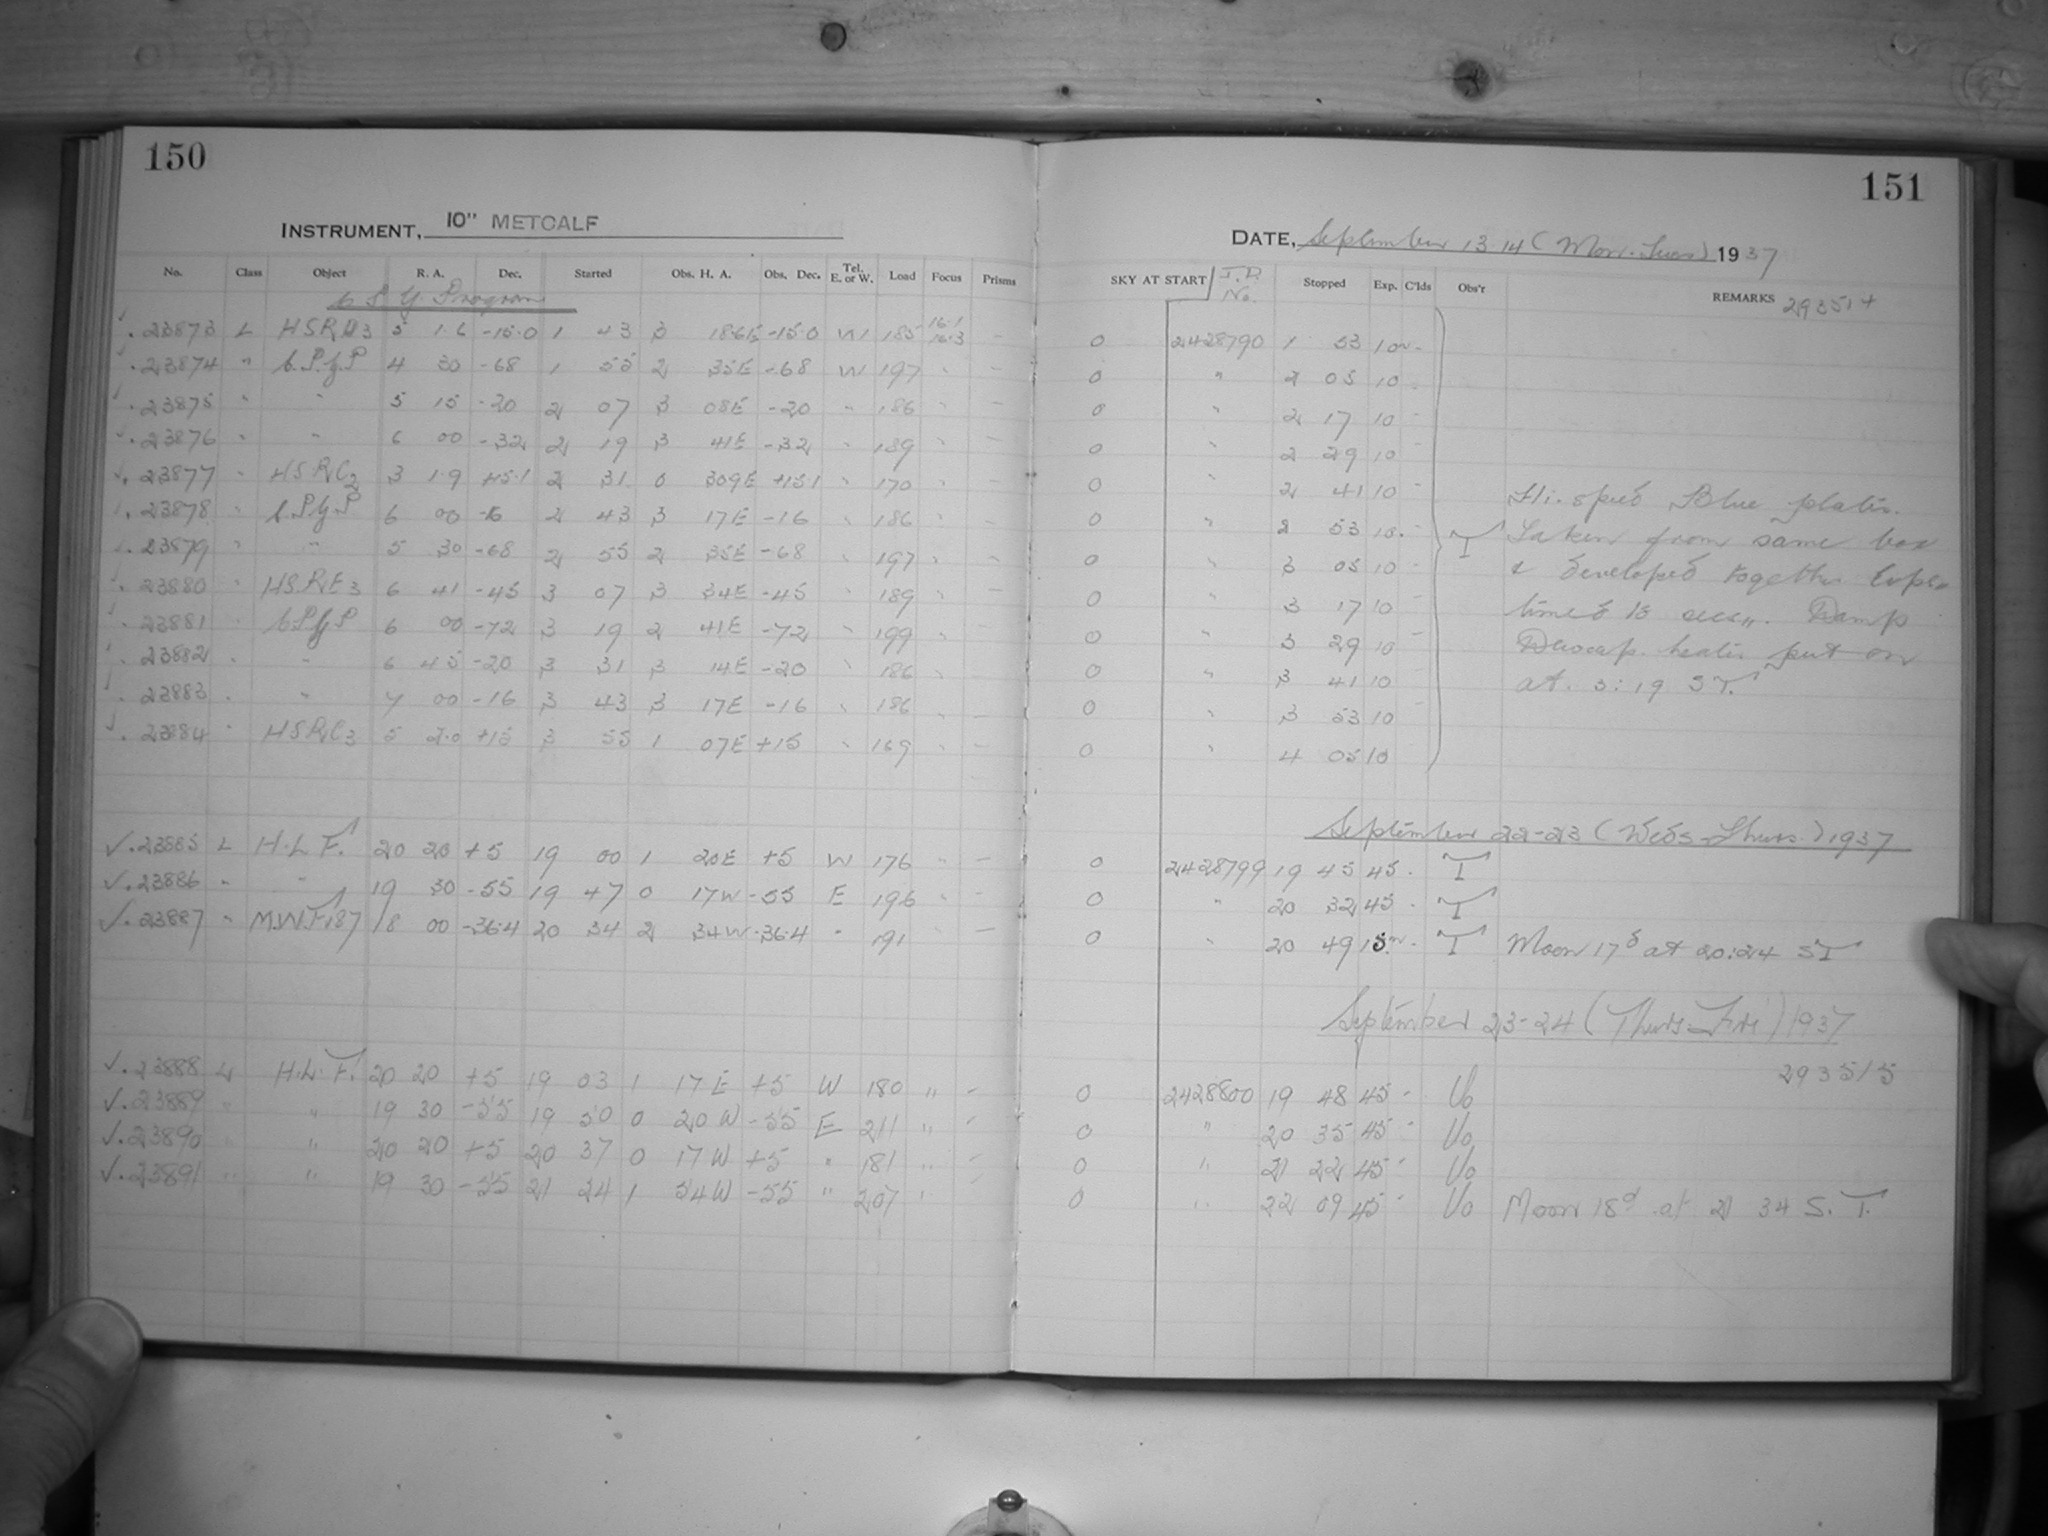 150
INSTRUMENT, 10" METCALF
No. Class Object R. A. Dec. Started Obs. H. A. Obs. Dec. Tel. E. or W. Load Focus Prisms
Program
23873 L HSR 5 1.6 -15.0 1 43 3 -15.0 W 185 16.1 16.3 -
23874 " 4 30 -68 1 55 2 35E -68 W 197 " -
23875 " " 5 15 -20 2 07 3 08E -20 " 186 " -
23876 " " 6 00 -32 2 19 3 41E -32 " 189 " -
23877 " HSRC2 3 1.9 +15.1 2 31 0 +15.1 " 170 " -
23878 " 6 00 -16 2 43 3 17E -16 " 186 " -
23879 " " 5 30 -68 2 55 2 35E -68 " 197 " -
23880 " HSRE3 6 41 -45 3 07 3 34E -45 " 189 " -
23881 " 6 00 -72 3 19 2 41E -72 " 199 " -
23882 " " 6 45 -20 3 31 3 14E -20 " 186 " -
23883 " " 7 00 -16 3 43 3 17E -16 " 186 " -
23884 " HSRC3 5 2.0 +15 3 55 1 07E +15 " 169 " -
✓.23885 L H.L.F. 20 20 +5 19 00 1 20E +5 W 176 " -
✓.23886 " " 19 30 -55 19 47 0 17W -55 E 196 " -
✓.23887 " M.W.F.187 18 00 -36.4 20 34 2 34W -36.4 " 191 " -
✓.23888 L H.L.F. 20 20 +5 19 03 1 17E +5 W 180 " -
✓.23889 " " 19 30 -55 19 50 0 20W -55 E 211 " -
✓.23890 " " 20 20 +5 20 37 0 17W +5 " 181 " -
✓.23891 " " 19 30 -55 21 24 1 54W -55 " 207 " -
151
DATE, September 13-14 (Mon.-Tues) 1937
SKY AT START J.D. No. Stopped Exp. C'lds Obs'r REMARKS 29351+
0 2428790 1 53 10m -
0 " 2 05 10 -
0 " 2 17 10 -
0 " 2 29 10 -
0 " 2 41 10 -
0 " 2 53 10 -
0 " 3 05 10 -
0 " 3 17 10 -
0 " 3 29 10 -
0 " 3 41 10 -
0 " 3 53 10 -
0 " 4 05 10
T
Hi. speed Blue plates.
Taken from same box
& developed together
timed secs. Damp
put on
at. 3:19 ST.
September 22-23 (Weds-Thurs.) 1937
0 2428799 19 45 45 - T
0 " 20 32 45 - T
0 " 20 49 15m - T Moon 17d at 20:24 ST
September 23-24 (Thurs-Fri) 1937
29351 5
0 2428800 19 48 45 - Uo
0 " 20 35 45 - Uo
0 " 21 22 45 - Uo
0 " 22 09 45 - Uo Moon 18d at 21 34 S. T.